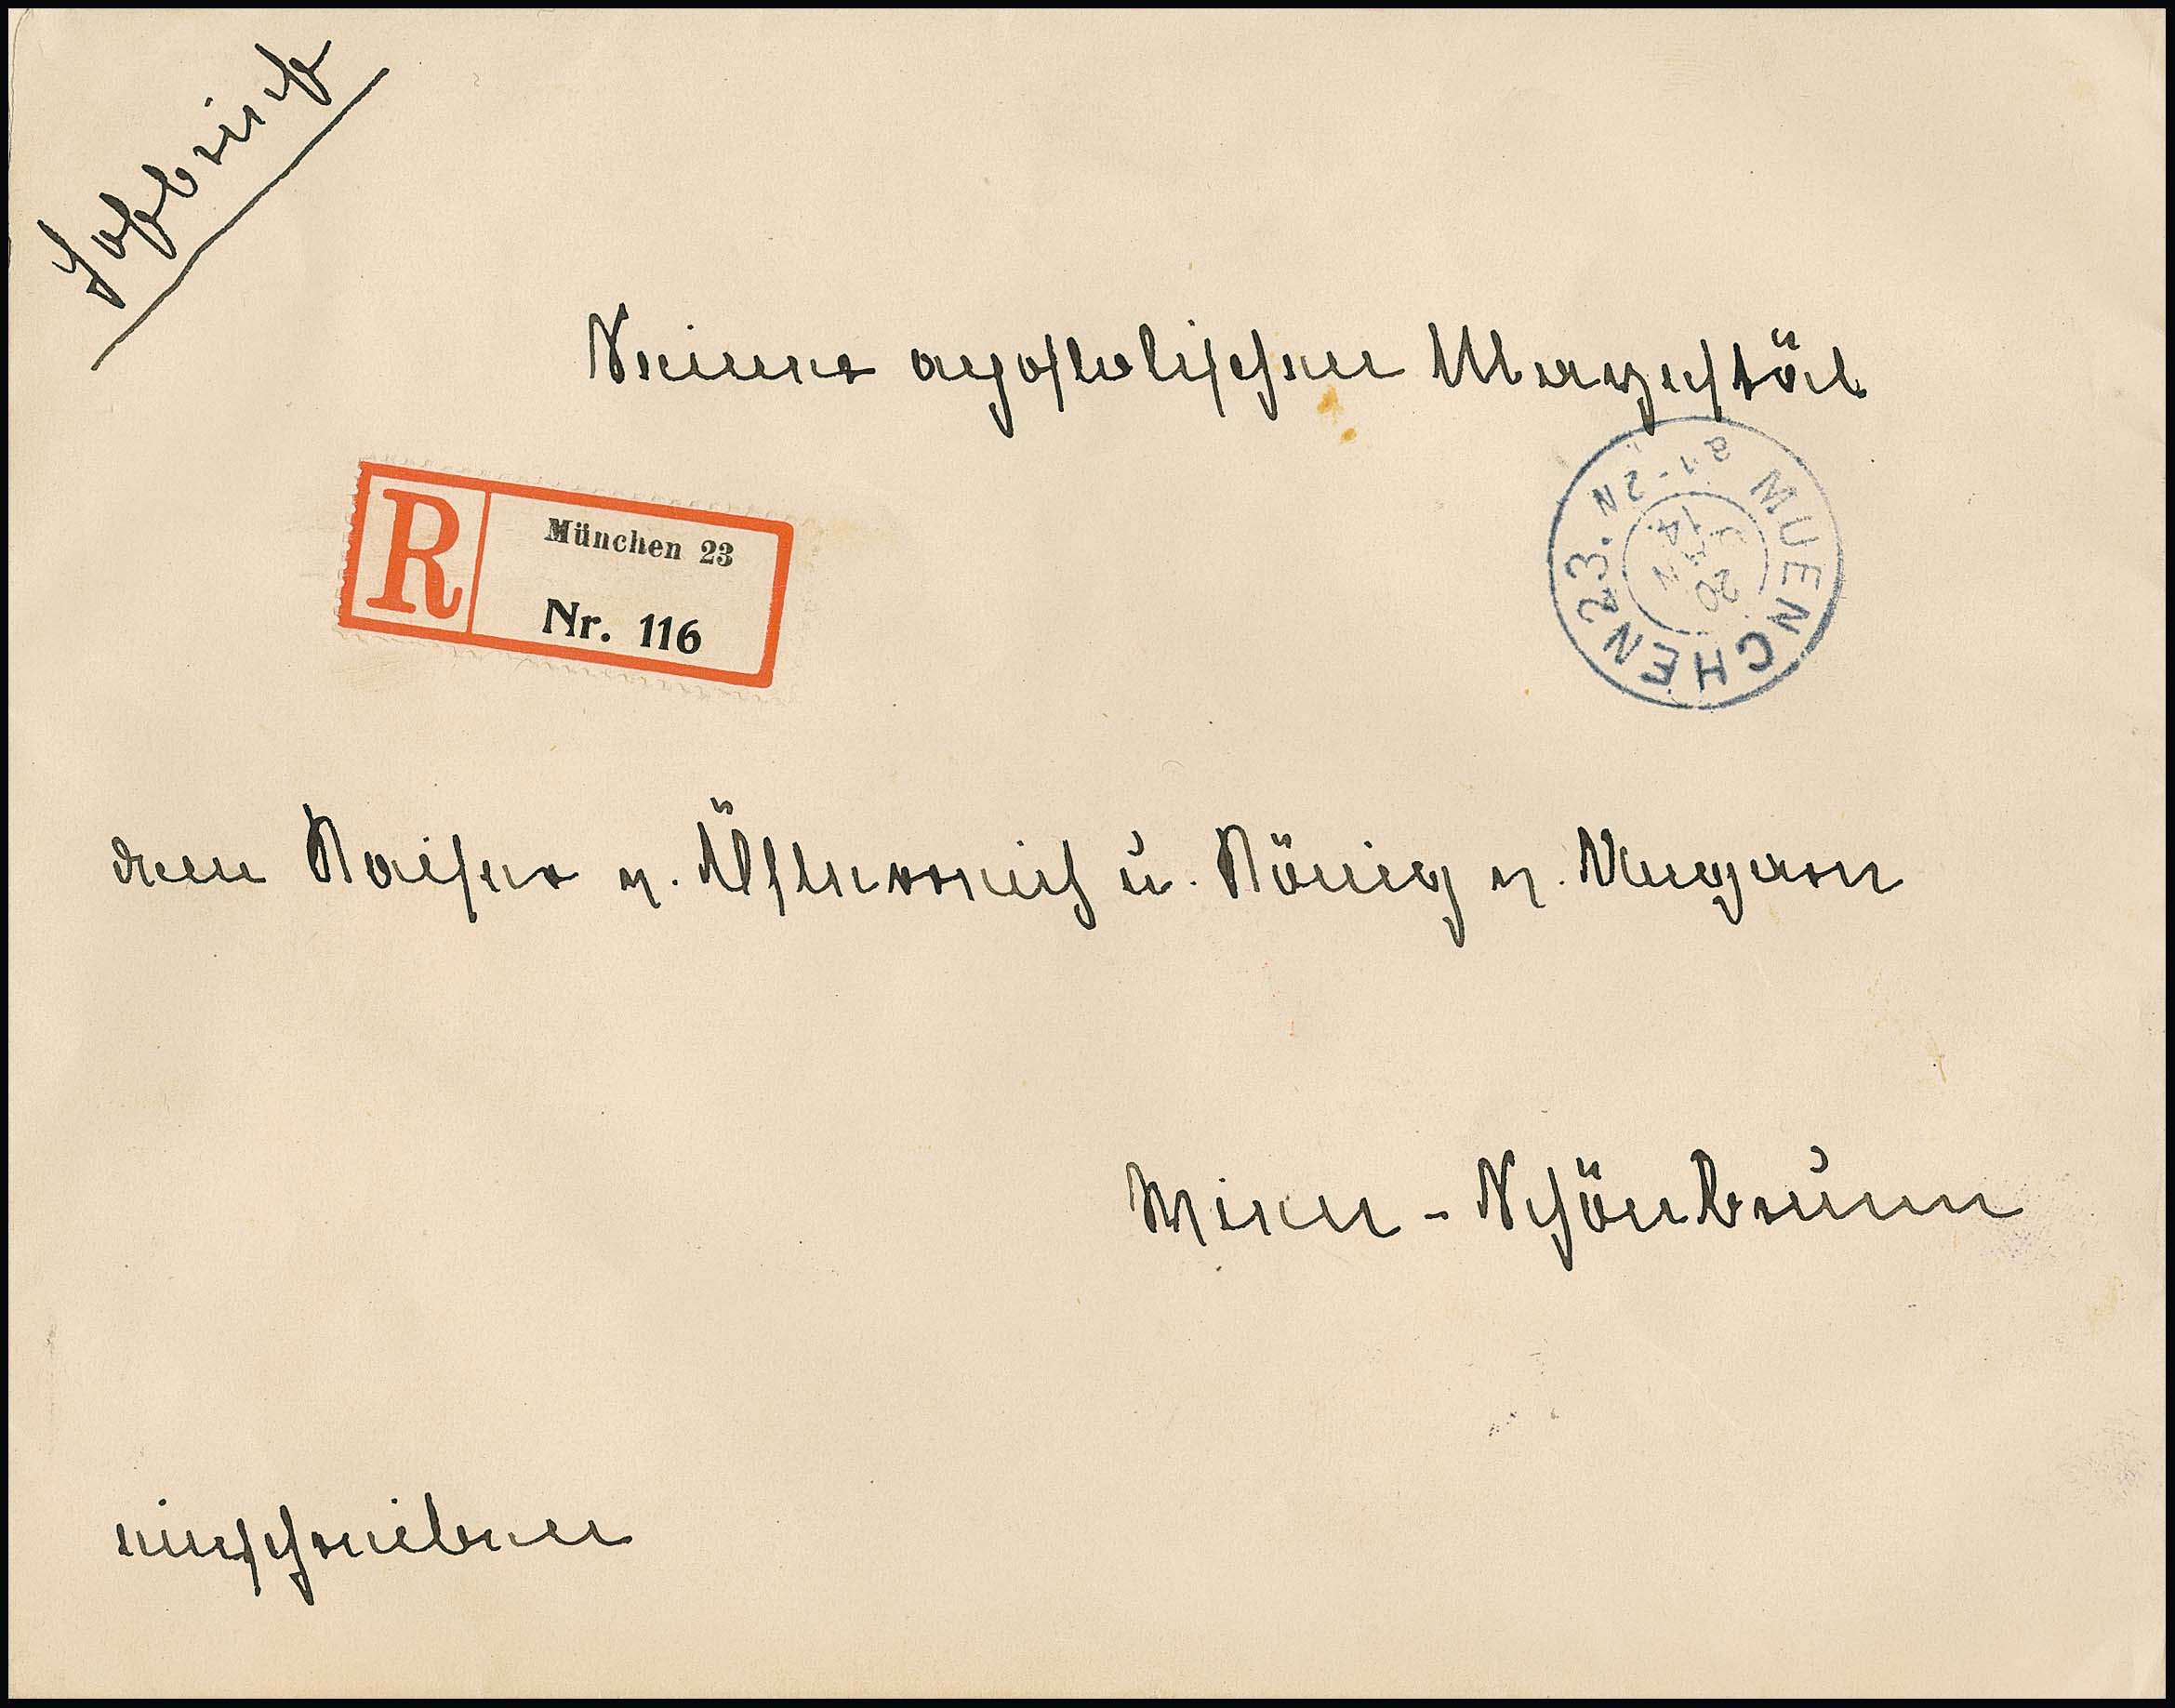 Hofbrief
Seiner apostolischen Majestät
R München 23
Nr. 116
MUENCHEN 23.
20
JAN
14.
1-2 N
a
dem Kaiser v. Österreich u. König v. Ungarn
Wien - Schönbrunn
einschreiben